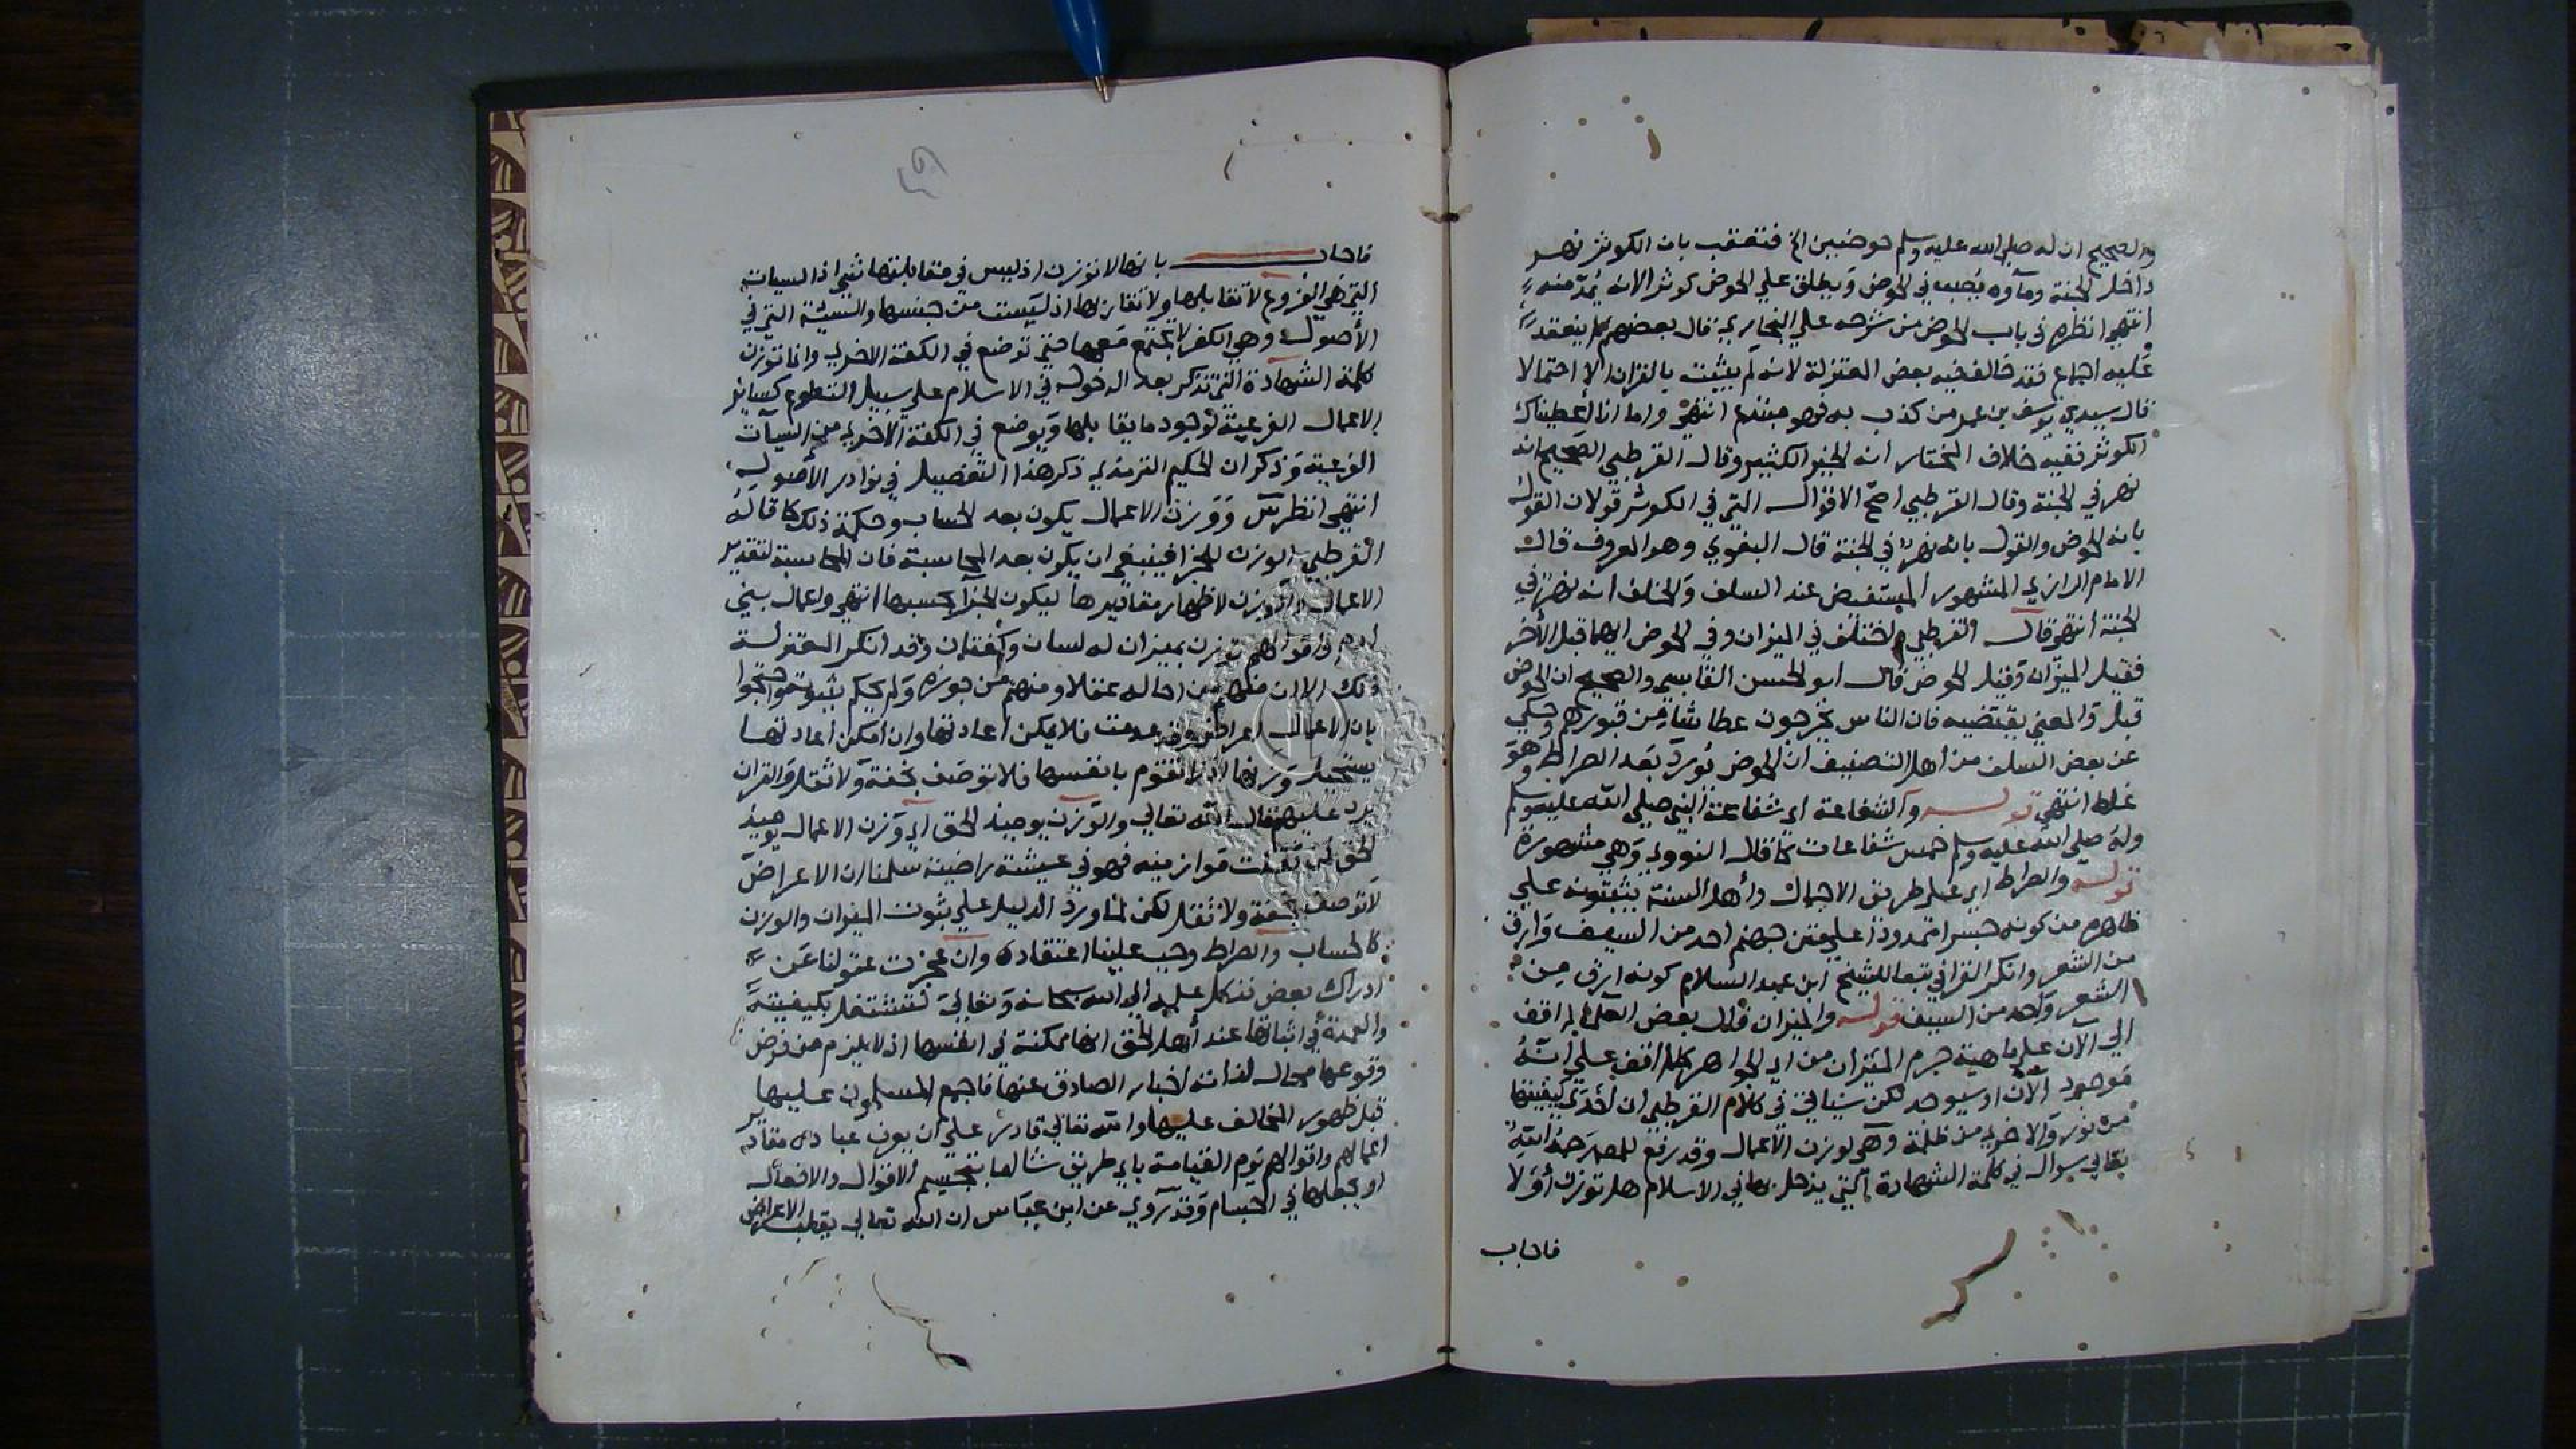 والصحيح ان له صلى الله عليه وسلم حوضين الخ فتعقب بان الكوثر نهر
داخل الجنة وماؤه يصب في الحوض ويطلق على الحوض كوثر لانه يمد منه
انتهى انظره في باب الحوض من شرحه على البخاري قال بعضهم لم ينعقد
عليه اجماع فقد خالف فيه بعض المعتزلة لانه لم يثبت بالقران الا احتمالا
قال سيدي يوسف بن عمر من كذب به فهو مبتدع انتهى واما انا أعطيناك
الكوثر ففيه خلاف المختار انه الخير الكثير وقال القرطبي الصحيح انه
نهر في الجنة وقال القرطبي اصح الاقوال التي في الكوثر قولان القول
بانه الحوض والقول بانه نهر في الجنة قال البغوي وهو المعروف قال
الامام الرازي المشهور المستفيض عند السلف والخلف انه نهر في
الجنة انتهى قال القرطبي واختلف في الميزان وفي الحوض ايهما قبل الأخر
فقيل الميزان وقيل الحوض قال ابو الحسن القابسي والصحيح ان الحوض
قبل والمعنى يقتضيه فان الناس يخرجون عطاشا من قبورهم وحكي
عن بعض السلف من أهل التصنيف ان الحوض يورد بعد الصراط وهو
غلط انتهى قوله والشفاعة اي شفاعة النبي صلى الله عليه وسلم
وله صلى الله عليه وسلم خمس شفاعات كما قال النووي وهي مشهورة
قوله والصراط اي على طريق الاجمال وأهل السنة يثبتونه على
ظاهره من كونه جسرا ممدودا على متن جهنم احد من السيف وارق
من الشعر وانكر القرافي تبعا للشيخ ابن عبد السلام كونه ارق من
الشعر وأحد من السيف قوله والميزان قال بعض العلما لم اقف
الي الآن على ماهية جرم الميزان من اي الجواهر كما لم اقف على انه
موجود الآن او سيوجد لكن سياتي في كلام القرطبي ان احدى كفيتها
من نور والاخرى من ظلمة وهي لوزن الاعمال وقد رفع للمص رحمه الله
تعالى سوال في كلمة الشهادة التي يدخل بها في الاسلام هل توزن أو لا
فاجاب
فاجاب بانها لا توزن اذ ليس في مقابلتها شي اذ السيات
التي هي الفروع لا تقابلها ولا تقارنها اذ ليست من جنسها والسيئة التي في
الأصول وهي الكفر لا يجتمع معها حتى توضع في الكفة الاخرى وانما توزن
كلمة الشهادة التي تذكر بعد الدخول في الاسلام على سبيل التطوع كسائر
الاعمال الفرعية لوجود ما يقابلها ويوضع في الكفة الاخرى من السيآت
الفرعية وذكر ان الحكيم الترمذي ذكر هذا التفصيل في نوادر الأصول
انتهى انظر تت ووزن الاعمال يكون بعد الحساب وحكمة ذلك كما قاله
القرطبي الوزن للجزا فينبغي ان يكون بعد المحاسبة فان المحاسبة لتقدير
الاعمال والوزن لاظهار مقاديرها ليكون الجزآ بحسبها انتهى واعمال بني
ادم واقوالهم توزن بميزان له لسان وكفتان وقد انكر المعتزلة
ذلك الا ان منهم من احاله عقلا ومنهم من جوزه ولم يحكم بثبوته واحتجوا
بان الاعمال اعراض وقد عدمت فلا يمكن اعادتها وان امكن اعادتها
يستحيل وزنها لانها لا تقوم بانفسها فلا توصف بخفة ولا ثقل والقران
يرد عليهم قال الله تعالي والوزن يومئذ الحق اي وزن الاعمال يومئذ
الحق فمن ثقلت موازينه فهو في عيشة راضية سلمنا ان الاعراض
لا توصف بخفة ولا ثقل لكن لما ورد الدليل على ثبوت الميزان والوزن
كالحساب والصراط وجب علينا اعتقاده وان عجزت عقولنا عن
ادراك بعض فنكل علمه الي الله سبحانه وتعالى ولا نشتغل بكيفيته
والعمدة في اثباتها عند أهل الحق انها ممكنة في انفسها اذ لا يلزم من فرض
وقوعها محال لذاته اخبار الصادق عنها فاجمع المسلمون عليها
قبل ظهور المخالف عليها والله تعالي قادر على ان يعرف عباده مقادير
اعمالهم واقوالهم يوم القيامة باي طريق شا اما بتجسيم الاقوال والافعال
او يجعلها في اجسام وقد روي عن ابن عباس ان الله تعالى يقلب الاعراض